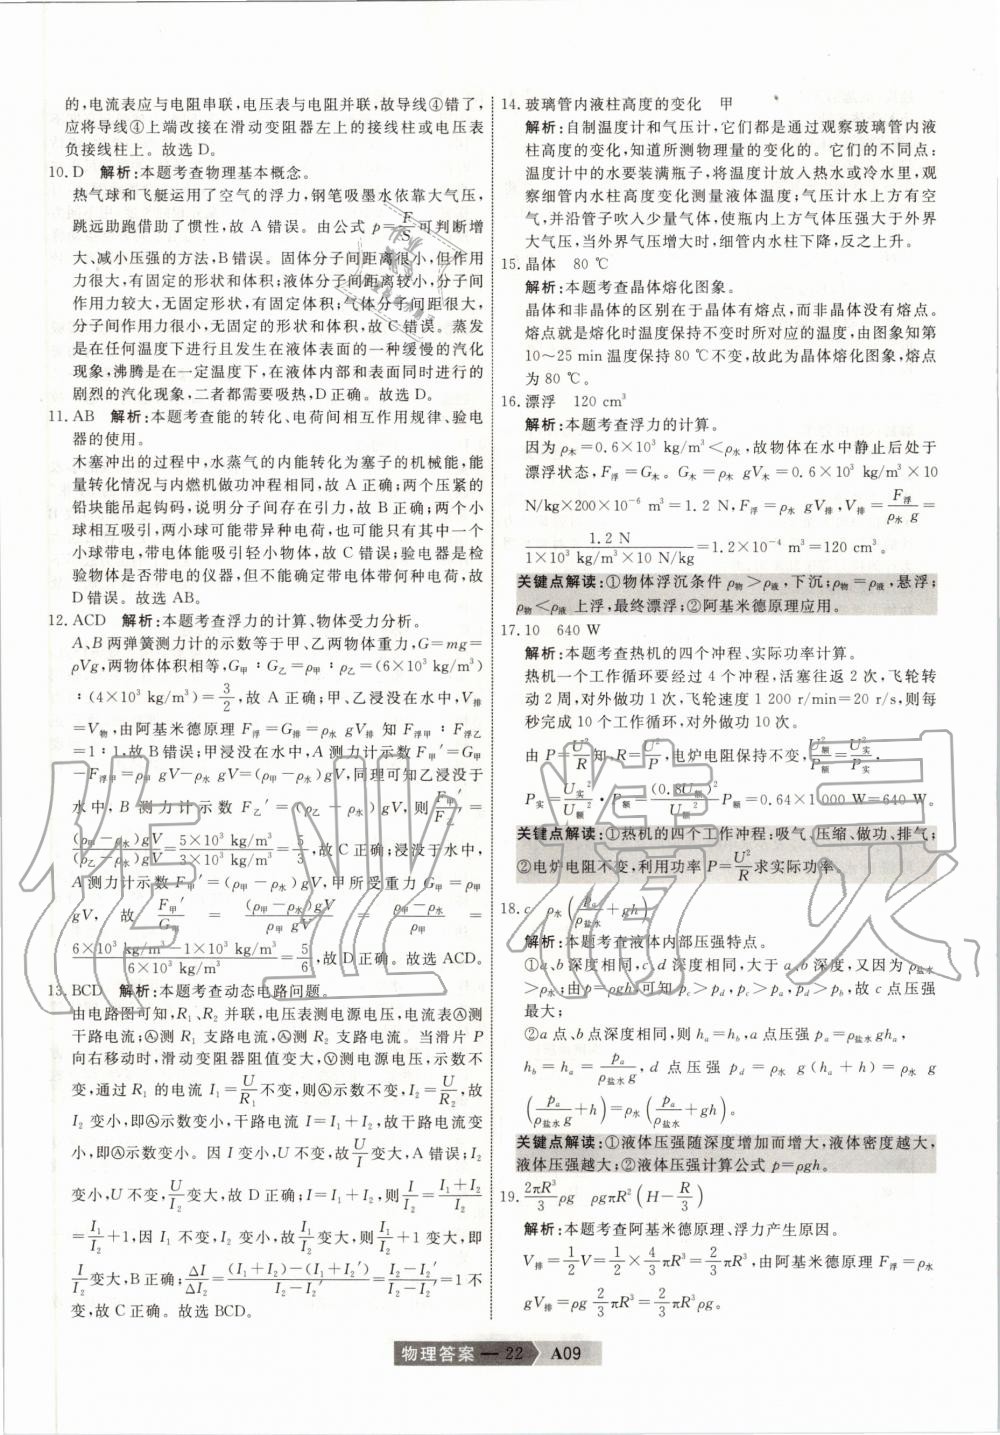 的,电流表应与电阻串联,电压表与电阻并联,故导线④错了,
应将导线④上端改接在滑动变阻器左上的接线柱或电压表
负接线柱上。故选 D。
10. D 解析:本题考查物理基本概念。
热气球和飞艇运用了空气的浮力,钢笔吸墨水依靠大气压,
跳远助跑借助了惯性,故 A 错误。由公式 p=F/S 可判断增
大、减小压强的方法,B 错误。固体分子间距离很小,但作用
力很大,有固定的形状和体积;液体分子间距离较小,分子间
作用力较大,无固定形状,有固定体积;气体分子间距很大,
分子间作用力很小,无固定的形状和体积,故 C 错误。蒸发
是在任何温度下进行且发生在液体表面的一种缓慢的汽化
现象,沸腾是在一定温度下,在液体内部和表面同时进行的
剧烈的汽化现象,二者都需要吸热,D 正确。故选 D。
11. AB 解析:本题考查能的转化、电荷间相互作用规律、验电
器的使用。
木塞冲出的过程中,水蒸气的内能转化为塞子的机械能,能
量转化情况与内燃机做功冲程相同,故 A 正确;两个压紧的
铅块能吊起钩码,说明分子间存在引力,故 B 正确;两个小
球相互吸引,两小球可能带异种电荷,也可能只有其中一个
小球带电,带电体能吸引轻小物体,故 C 错误;验电器是检
验物体是否带电的仪器,但不能确定带电体带何种电荷,故
D 错误。故选 AB。
12. ACD 解析:本题考查浮力的计算、物体受力分析。
A、B 两弹簧测力计的示数等于甲、乙两物体重力,G=mg=
ρVg,两物体体积相等,G甲∶G乙=ρ甲∶ρ乙=(6×10³ kg/m³)
∶(4×10³ kg/m³)=3/2,故 A 正确;甲、乙浸没在水中,V排
=V物,由阿基米德原理 F浮=G排=ρ水 gV排 知 F浮甲∶F浮乙
=1∶1,故 B 错误;甲浸没在水中,A 测力计示数 F甲′=G甲
-F浮甲=ρ甲 gV-ρ水 gV=(ρ甲-ρ水)gV,同理可知乙浸没于
水中,B 测力计示数 F乙′=(ρ乙-ρ水)gV,则 F甲′/F乙′=
(ρ甲-ρ水)gV/(ρ乙-ρ水)gV=5×10³ kg/m³/3×10³ kg/m³=5/3,故 C 正确;浸没于水中,
A 测力计示数 F甲′=(ρ甲-ρ水)gV,甲所受重力 G甲=ρ甲
gV,故 F甲′/G甲=(ρ甲-ρ水)gV/ρ甲 gV=ρ甲-ρ水/ρ甲=
6×10³ kg/m³-1×10³ kg/m³/6×10³ kg/m³=5/6,故 D 正确。故选 ACD。
13. BCD 解析:本题考查动态电路问题。
由电路图可知,R₁、R₂ 并联,电压表测电源电压,电流表Ⓐ测
干路电流;Ⓐ₁测 R₁ 支路电流,Ⓐ₂测 R₂ 支路电流。当滑片 P
向右移动时,滑动变阻器阻值变大,Ⓥ测电源电压,示数不
变,通过 R₁ 的电流 I₁=U/R₁不变,则Ⓐ₁示数不变,I₂=U/R₂,故
I₂ 变小,即Ⓐ₂示数变小,干路电流 I=I₁+I₂,故干路电流 I
变小,即Ⓐ示数变小。因 I 变小,U 不变,故U/I变大,A 错误;I₂
变小,U 不变,U/I₂变大,故 D 正确;I=I₁+I₂,则I/I₂=I₁+I₂/I₂
=I₁/I₂+1,因 I₁ 不变,I₂ 变小,故I₁/I₂变大,则I₁/I₂+1 变大,即
I/I₂变大,B 正确;ΔI/ΔI₂=(I₁+I₂)-(I₁+I₂′)/I₂-I₂′=I₂-I₂′/I₂-I₂′=1 不
变,故 C 正确。故选 BCD。
14. 玻璃管内液柱高度的变化 甲
解析:自制温度计和气压计,它们都是通过观察玻璃管内液
柱高度的变化,知道所测物理量的变化的。它们的不同点:
温度计中的水要装满瓶子,将温度计放入热水或冷水里,观
察细管内水柱高度变化测量液体温度;气压计水上方有空
气,并沿管子吹入少量气体,使瓶内上方气体压强大于外界
大气压,当外界大气压增大时,细管内水柱下降,反之上升。
15. 晶体 80 ℃
解析:本题考查晶体熔化图象。
晶体和非晶体的区别在于晶体有熔点,而非晶体没有熔点。
熔点就是熔化时温度保持不变时所对应的温度,由图象知第
10~25 min 温度保持 80 ℃不变,故此为晶体熔化图象,熔点
为 80 ℃。
16. 漂浮 120 cm³
解析:本题考查浮力的计算。
因为 ρ木=0.6×10³ kg/m³<ρ水,故物体在水中静止后处于
漂浮状态,F浮=G木。G木=ρ木 gV木=0.6×10³ kg/m³×10
N/kg×200×10⁻⁶ m³=1.2 N,F浮=ρ水 gV排,V排=F浮/ρ水 g=
1.2 N/1×10³ kg/m³×10 N/kg=1.2×10⁻⁴ m³=120 cm³。
关键点解读:①物体浮沉条件 ρ物>ρ液,下沉;ρ物=ρ液,悬浮;
ρ物<ρ液 上浮,最终漂浮;②阿基米德原理应用。
17. 10 640 W
解析:本题考查热机的四个冲程、实际功率计算。
热机一个工作循环要经过 4 个冲程,活塞往返 2 次,飞轮转
动 2 周,对外做功 1 次,飞轮速度 1 200 r/min=20 r/s,则每
秒完成 10 个工作循环,对外做功 10 次。
由 P=U²/R知,R=U²/P,电炉电阻保持不变,U额²/P额=U实²/P实,
P实=U实²/U额²·P额=(0.8U额)²/U额²P额=0.64×1 000 W=640 W。
关键点解读:①热机的四个工作冲程:吸气、压缩、做功、排气;
②电炉电阻不变,利用功率 P=U²/R求实际功率。
18. c ρ水(pₐ/ρ盐水+gh)
解析:本题考查液体内部压强特点。
①a、b 深度相同,c、d 深度相同,大于 a、b 深度,又因为 ρ盐水
>ρ水;由 p=ρgh 可知 p_c>p_d,p_c>pₐ,p_d>p_b,故 c 点压强
最大;
②a 点、b 点深度相同,则 hₐ=h_b,a 点压强 pₐ=ρ盐水 ghₐ,
h_b=hₐ=pₐ/ρ盐水 g,d 点压强 p_d=ρ水 g(hₐ+h)=ρ水 g
(pₐ/ρ盐水 g+h)=ρ水(pₐ/ρ盐水+gh)。
关键点解读:①液体压强随深度增加而增大,液体密度越大,
液体压强越大;②液体压强计算公式 p=ρgh。
19. 2πR³/3ρg ρgπR²(H-R/3)
解析:本题考查阿基米德原理、浮力产生原因。
V排=1/2V=1/2×4/3πR³=2/3πR³,由阿基米德原理 F浮=ρ水
gV排=ρg 2/3πR³=2/3πR³ρg。
物理答案—22 A09
作业精灵